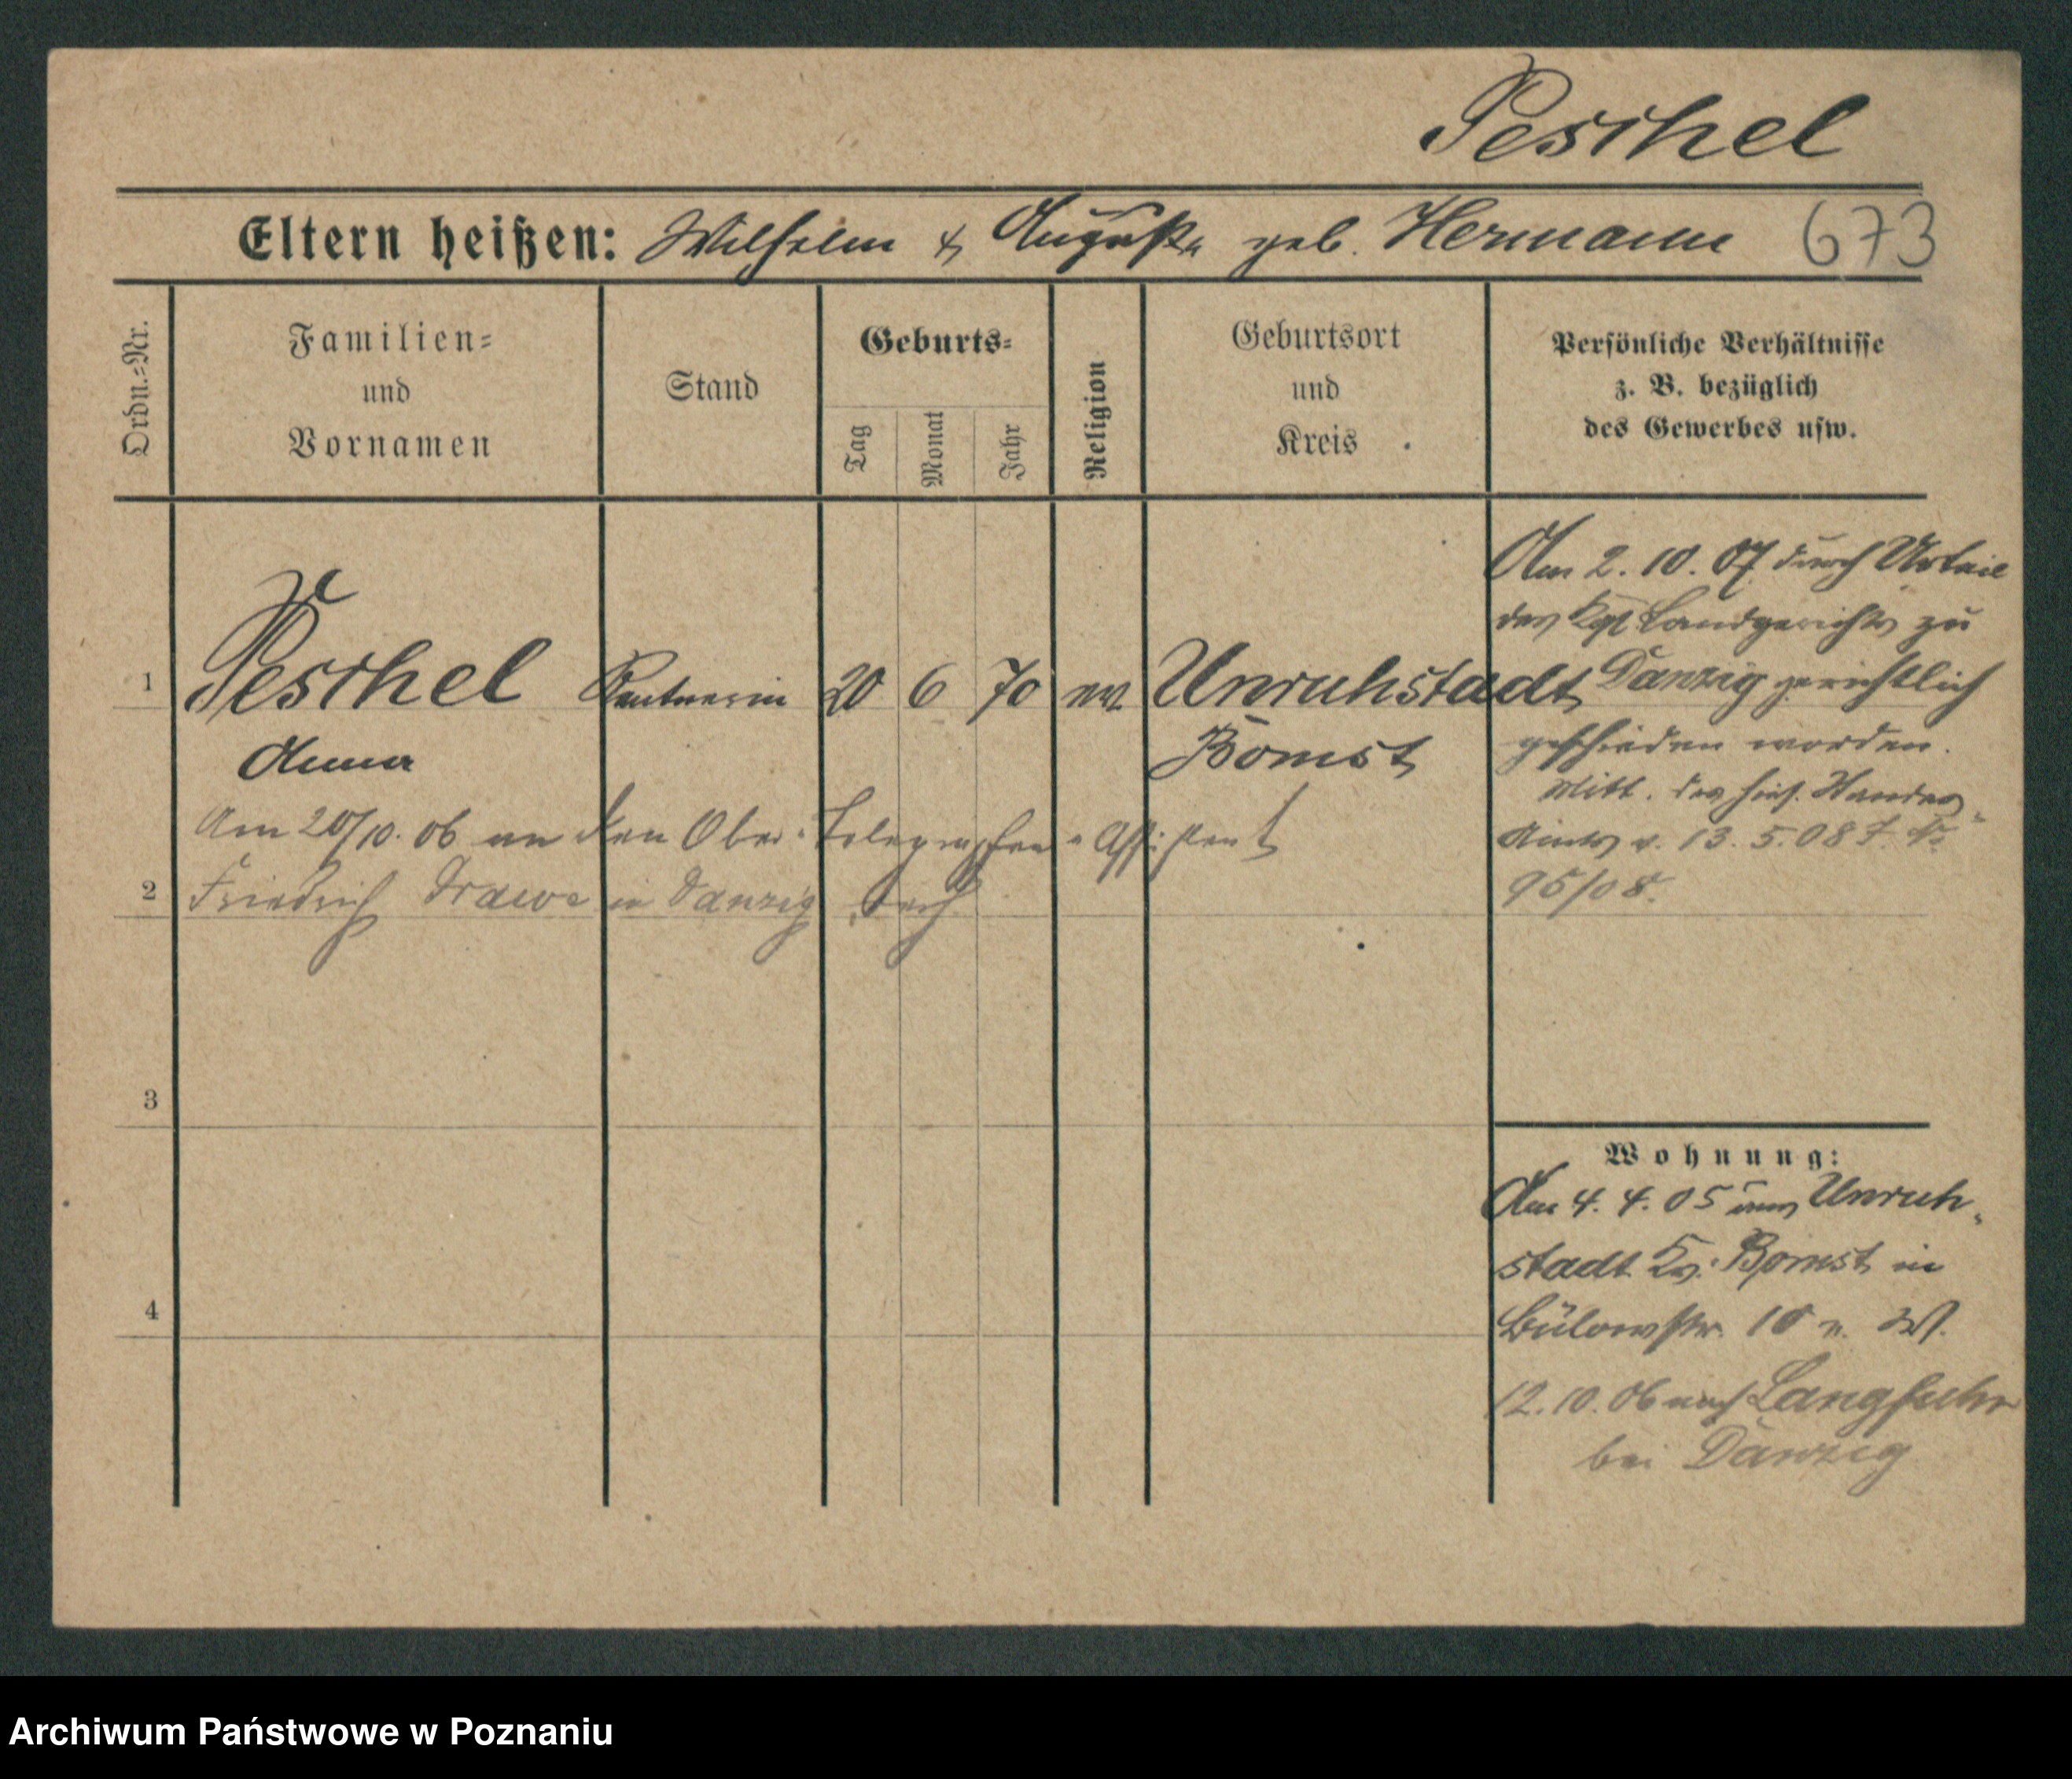 Peschel
Eltern heißen: Wilhelm & Auguste geb. Hermann 673
Ordn.-Nr.
Familien-
und
Vornamen
Stand
Geburts-
Tag
Monat
Jahr
Religion
Geburtsort
und
Kreis
Persönliche Verhältnisse
z. B. bezüglich
des Gewerbes usw.
1 Peschel Rentnerin 20 6 70 ev. Unruhstadt
Anna Bomst
Am 20/10. 06 an den Ober-Telegraphen-Assistent
2 Friedrich in Danzig verh.
3
4
Am 2. 10. 07 durch Urteil
des Kgl Landgerichts zu
Danzig gerichtlich
geschieden worden.
Mitt. des hies. Standes-
Amts v. 13. 5. 08
95/08.
Wohnung:
Am 4. 4. 05 von Unruh-
stadt Kr. Bomst in
Bülowstr. 10
12. 10. 06 nach Langfuhr
bei Danzig
Archiwum Państwowe w Poznaniu